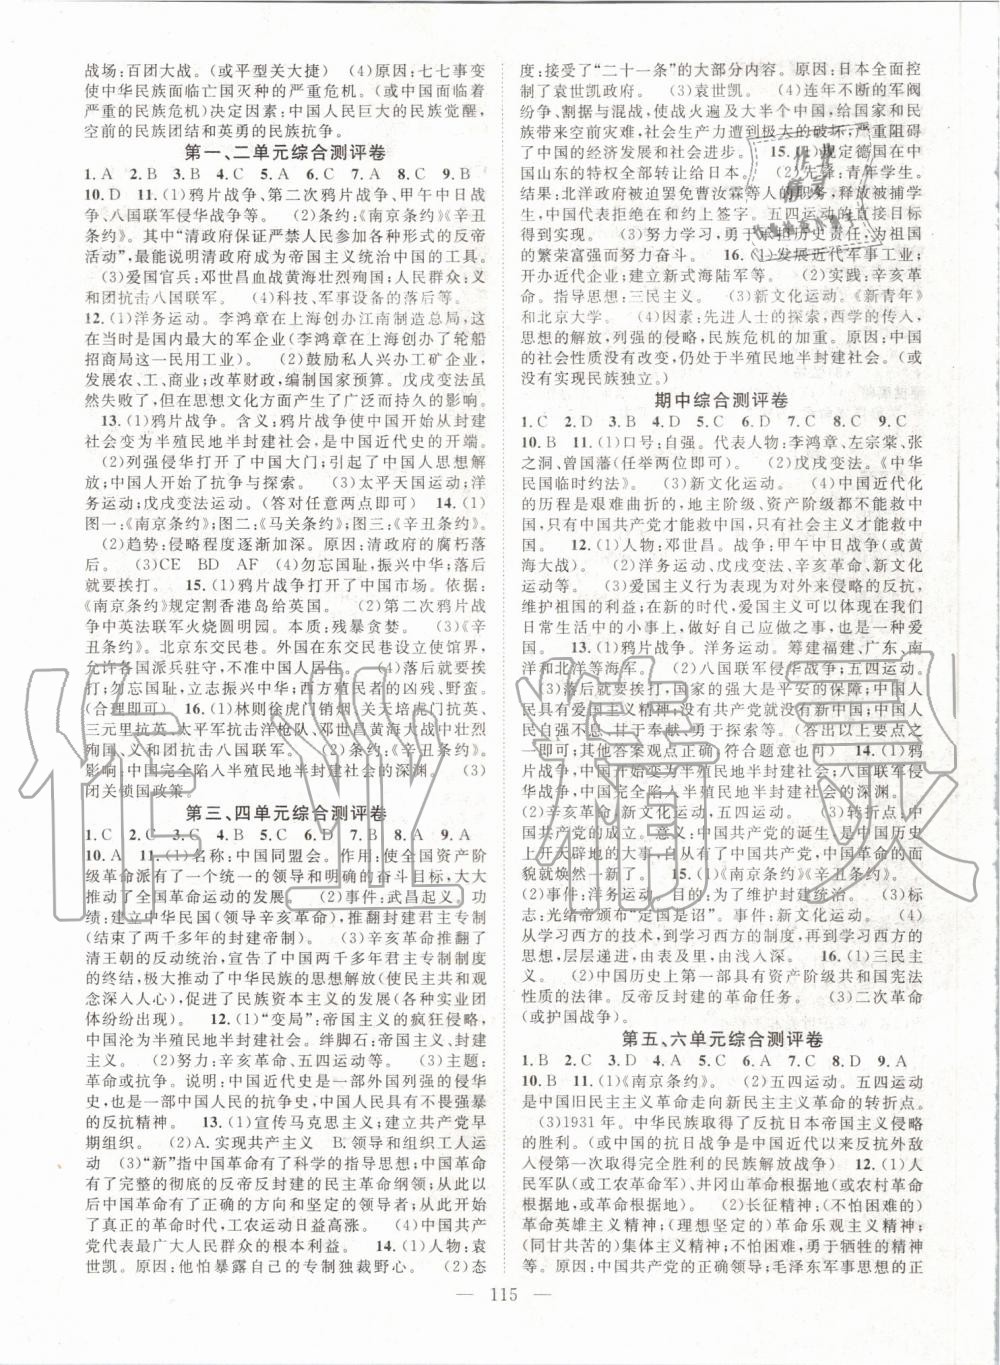 战场:百团大战。(或平型关大捷)　(4)原因:七七事变
使中华民族面临亡国灭种的严重危机。(或中国面临着
严重的民族危机)决定因素:中国人民巨大的民族觉醒,
空前的民族团结和英勇的民族抗争。
第一、二单元综合测评卷
1. A　2. D　3. B　4. B　5. C　6. A　7. D　8. C　9. B
10. D　11. (1)鸦片战争、第二次鸦片战争、甲午中日战
争、八国联军侵华战争等。　(2)条约:《南京条约》《辛丑
条约》。其中“清政府保证严禁人民参加各种形式的反帝
活动”,最能说明清政府成为帝国主义统治中国的工具。
(3)爱国官兵:邓世昌血战黄海壮烈殉国;人民群众:义
和团抗击八国联军。　(4)科技、军事设备的落后等。
12. (1)洋务运动。李鸿章在上海创办江南制造总局,这
在当时是国内最大的军企业(李鸿章在上海创办了轮船
招商局这一民用工业)。　(2)鼓励私人兴办工矿企业,
发展农、工、商业;改革财政,编制国家预算。戊戌变法虽
然失败了,但在思想文化方面产生了广泛而持久的影响。
13. (1)鸦片战争。含义:鸦片战争使中国开始从封建
社会变为半殖民地半封建社会,是中国近代史的开端。
(2)列强侵华打开了中国大门;引起了中国人思想解
放;中国人开始了抗争与探索。　(3)太平天国运动;洋
务运动;戊戌变法运动。(答对任意两点即可)　14. (1)
图一:《南京条约》;图二:《马关条约》;图三:《辛丑条约》。
(2)趋势:侵略程度逐渐加深。原因:清政府的腐朽落
后。　(3)CE　BD　AF　(4)勿忘国耻,振兴中华;落后
就要挨打。　15. (1)鸦片战争打开了中国市场。依据:
《南京条约》规定割香港岛给英国。　(2)第二次鸦片战
争中英法联军火烧圆明园。本质:残暴贪婪。　(3)《辛
丑条约》。北京东交民巷。外国在东交民巷设立使馆界,
允许各国派兵驻守,不准中国人居住。　(4)落后就要挨
打;勿忘国耻,立志振兴中华;西方殖民者的凶残、野蛮。
(合理即可)　16. (1)林则徐虎门销烟、关天培虎门抗英、
三元里抗英、太平军抗击洋枪队、邓世昌黄海大战中壮烈
殉国、义和团抗击八国联军。　(2)条约:《辛丑条约》。
影响:中国完全陷入半殖民地半封建社会的深渊。　(3)
闭关锁国政策。
第三、四单元综合测评卷
1. C　2. C　3. C　4. B　5. C　6. D　7. B　8. A　9. A
10. A　11. (1)名称:中国同盟会。作用:使全国资产阶
级革命派有了一个统一的领导和明确的奋斗目标,大大
推动了全国革命运动的发展。　(2)事件:武昌起义。功
绩:建立中华民国(领导辛亥革命),推翻封建君主专制
(结束了两千多年的封建帝制)。　(3)辛亥革命推翻了
清王朝的反动统治,宣告了中国两千多年君主专制制度
的终结,极大推动了中华民族的思想解放(使民主共和观
念深入人心),促进了民族资本主义的发展(各种实业团
体纷纷出现)。　12. (1)“变局”:帝国主义的疯狂侵略,
中国沦为半殖民地半封建社会。绊脚石:帝国主义、封建
主义。　(2)努力:辛亥革命、五四运动等。　(3)主题:
革命或抗争。说明:中国近代史是一部外国列强的侵华
史,也是一部中国人民的屈辱史,更是一部不畏强暴的
反抗精神。　13. (1)宣传马克思主义;成立中国共产党早
期组织。　(2)A. 实现共产主义　B. 领导和组织工人运
动　(3)“新”指中国革命有了科学的指导思想;革命有
了完整的彻底的反帝反封建的民主革命纲领;从此中国
革命有了正确的方向和坚定的领导者;从此革命开始了
了真正的革命时代,工农运动日益高涨。　(4)中国共产
党代表最广大人民群众的根本利益。　14. (1)人物:袁
世凯。原因:他怕暴露自己的专制独裁野心。　(2)态
度:接受了“二十一条”的大部分内容。原因:日本全面控
制了袁世凯政府。　(3)袁世凯。　(4)连年不断的军阀
纷争、割据与混战,使战火遍及大半个中国,给国家和民
族带来空前灾难,社会生产力遭到极大的破坏,严重阻碍
了中国的经济发展和社会进步。　15. (1)规定德国在中国
山东的特权全部转让给日本。　(2)先锋:青年学生。
结果:北洋政府被迫罢免曹汝霖等人的职务,释放被捕学
生,中国代表拒绝在和约上签字。五四运动的直接目标
得到实现。　(3)努力学习,勇于承担历史责任,为祖国
的繁荣富强而努力奋斗。　16. (1)发展近代军事工业;
开办近代企业;建立新式海陆军等。　(2)实践:辛亥革
命。指导思想:三民主义。　(3)新文化运动。《新青年》
和北京大学。　(4)因素:先进人士的探索,西学的传入,
思想的解放,列强的侵略,民族危机的加重。原因:中国
的社会性质没有改变,仍处于半殖民地半封建社会。(或
没有实现民族独立。)
期中综合测评卷
1. C　2. D　3. B　4. C　5. D　6. D　7. C　8. C　9. C
10. B　11. (1)口号:自强。代表人物:李鸿章、左宗棠、张
之洞、曾国藩(任举两位即可)。　(2)戊戌变法。《中华
民国临时约法》。　(3)新文化运动。　(4)中国近代化
的历程是艰难曲折的,地主阶级、资产阶级都不能救中
国,只有中国共产党才能救中国,只有社会主义才能救中
国。　12. (1)人物:邓世昌。战争:甲午中日战争(或黄
海大战)。　(2)洋务运动、戊戌变法、辛亥革命、新文化
运动等。　(3)爱国主义行为表现为对外来侵略的反抗,
维护祖国的利益;在新的时代,爱国主义可以体现在我们
日常生活中的小事上,做好自己应做之事,不做危害国家
之事。　13. (1)鸦片战争。洋务运动。筹建福建、广东、南
洋和北洋等海军。　(2)八国联军侵华战争;五四运动。
(3)落后就要挨打,国家的强大是平安的保障;中国人民
具有爱国主义精神;没有共产党就没有新中国;中国人民
具有不忘国恥、甘于奉献、勇于探索等。(答出以上要点之
一即可;其他答案观点正确、符合题意也可)　14. (1)鸦
片战争、《辛丑条约》。影响:《辛丑条约》的签订,
中国完全陷入半殖民地半封建社会的深渊。
(2)辛亥革命、新文化运动、五四运动。　(3)转折点:中
国共产党的成立。意义:中国共产党的诞生,是中国历史
上开天辟地的大事,自从有了中国共产党,中国革命的面
貌就焕然一新了。　15. (1)《南京条约》。《辛丑条约》。
(2)事件:洋务运动。目的:为了维护封建统治。　(3)标
志:光绪帝颁布“定国是诏”。事件:新文化运动。　(4)
从学习西方的技术,到学习西方的制度,再到学习西方的
思想,层层递进,由表及里,由浅入深。　16. (1)三民主
义。　(2)中国历史上第一部具有资产阶级共和国宪法
性质的法律。反帝反封建的革命任务。　(3)二次革命
(或护国战争)。
第五、六单元综合测评卷
1. B　2. C　3. D　4. A　5. C　6. A　7. C　8. D　9. A
10. B　11. (1)《南京条约》。　(2)五四运动。五四运动
是中国旧民主主义革命走向新民主主义革命的转折点。
(3)1931年。中华民族取得了反抗日本帝国主义侵略
的胜利。(或中国的抗日战争是中国近代以来反抗外敌
入侵第一次取得完全胜利的民族解放战争)　12. (1)人
民军队(或工农革命军)、井冈山革命根据地(或农村革命
根据地,或革命根据地)。　(2)长征精神:(不怕困难的)
革命英雄主义精神;(理想坚定的)革命乐观主义精神;
(同甘共苦的)集体主义精神;勇于牺牲的精神
等。原因:中国共产党的正确领导;毛泽东军事思想的正
115